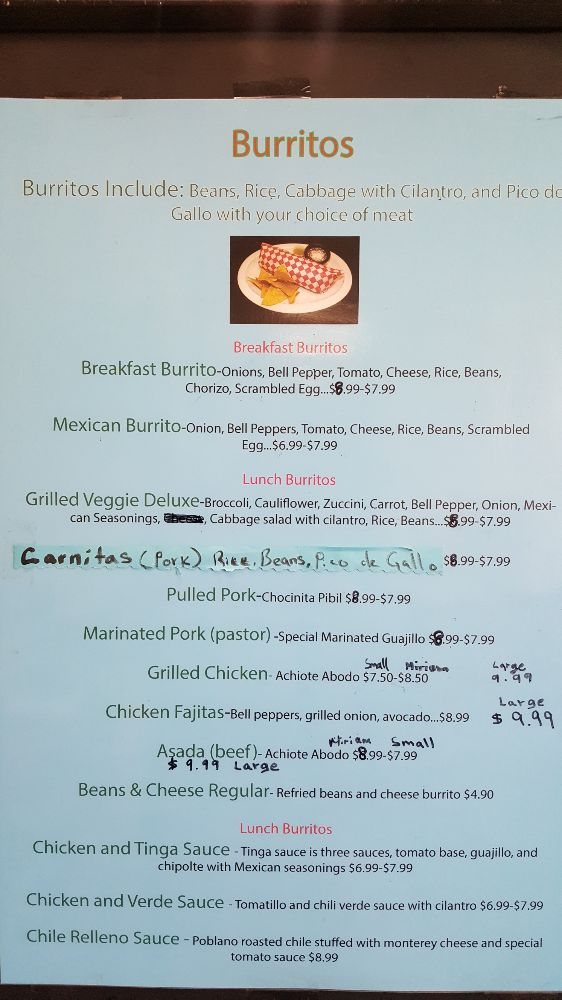 Burritos
Burritos Include: Beans, Rice, Cabbage with Cilantro, and Pico de
Gallo with your choice of meat
Breakfast Burritos
Breakfast Burrito-Onions, Bell Pepper, Tomato, Cheese, Rice, Beans,
Chorizo, Scrambled Egg...$8.99-$7.99
Mexican Burrito-Onion, Bell Peppers, Tomato, Cheese, Rice, Beans, Scrambled
Egg...$6.99-$7.99
Lunch Burritos
Grilled Veggie Deluxe-Broccoli, Cauliflower, Zuccini, Carrot, Bell Pepper, Onion, Mexi-
can Seasonings, Cabbage salad with cilantro, Rice, Beans...$8.99-$7.99
Carnitas (Pork) Rice, Beans, Pico de Gallo $8.99-$7.99
Pulled Pork-Chocinita Pibil $8.99-$7.99
Marinated Pork (pastor) -Special Marinated Guajillo $8.99-$7.99
Small Large
Grilled Chicken- Achiote Abodo $7.50-$8.50 9.99
Large
Chicken Fajitas-Bell peppers, grilled onion, avocado...$8.99 $ 9.99
Small
Asada (beef)- Achiote Abodo $8.99-$7.99
$ 9.99 Large
Beans & Cheese Regular- Refried beans and cheese burrito $4.90
Lunch Burritos
Chicken and Tinga Sauce - Tinga sauce is three sauces, tomato base, guajillo, and
chipolte with Mexican seasonings $6.99-$7.99
Chicken and Verde Sauce - Tomatillo and chili verde sauce with cilantro $6.99-$7.99
Chile Relleno Sauce - Poblano roasted chile stuffed with monterey cheese and special
tomato sauce $8.99